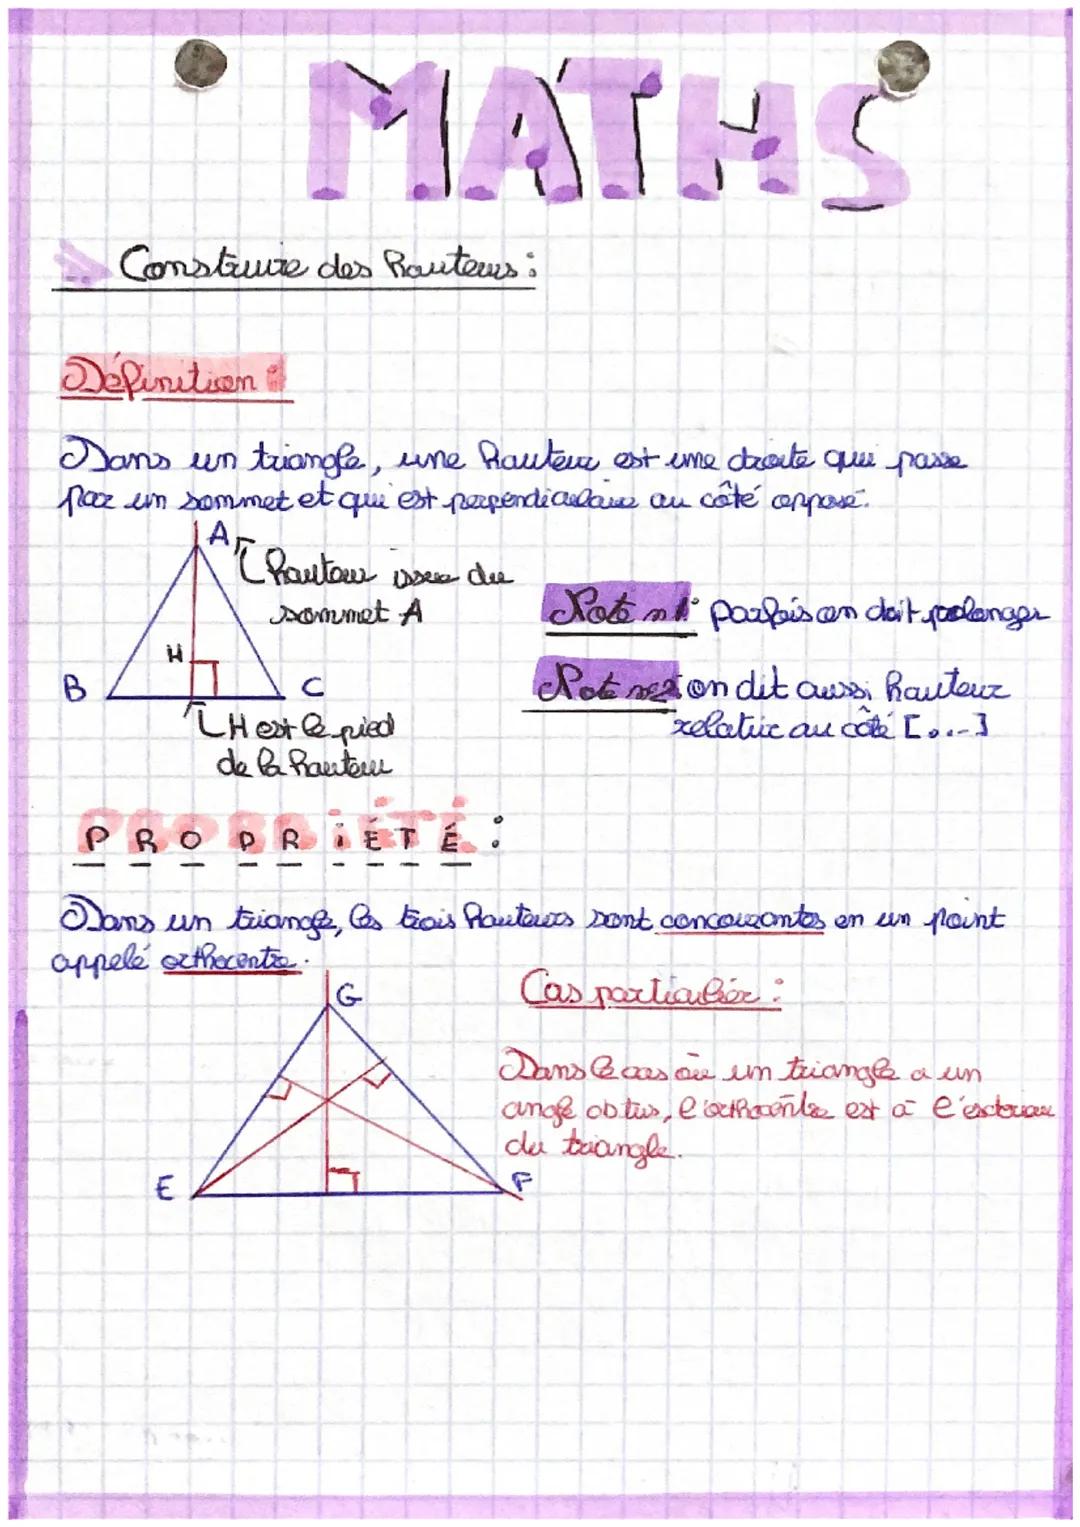 MATHS
Construire des hauteurs :
Définition :
Dans un triangle, une hauteur est une droite qui passe
par un sommet et qui est perpendiculaire au côté opposé.
A
hauteur issue du
sommet A
H
B
C
H est le pied
de la hauteur
Note n1: parfois on doit prolonger
Note n2: on dit aussi hauteur
relative au côté [...]
PROPRiÉTÉ :
Dans un triangle, les trois hauteurs sont concourantes en un point
appelé orthocentre.
G
E
F
Cas particulier :
Dans le cas où un triangle a un
angle obtus, l'orthocentre est à l'extérieur
du triangle.